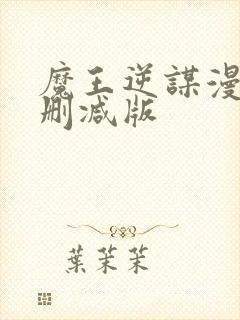 魔王逆謀漫
刪減版
葉茉茉